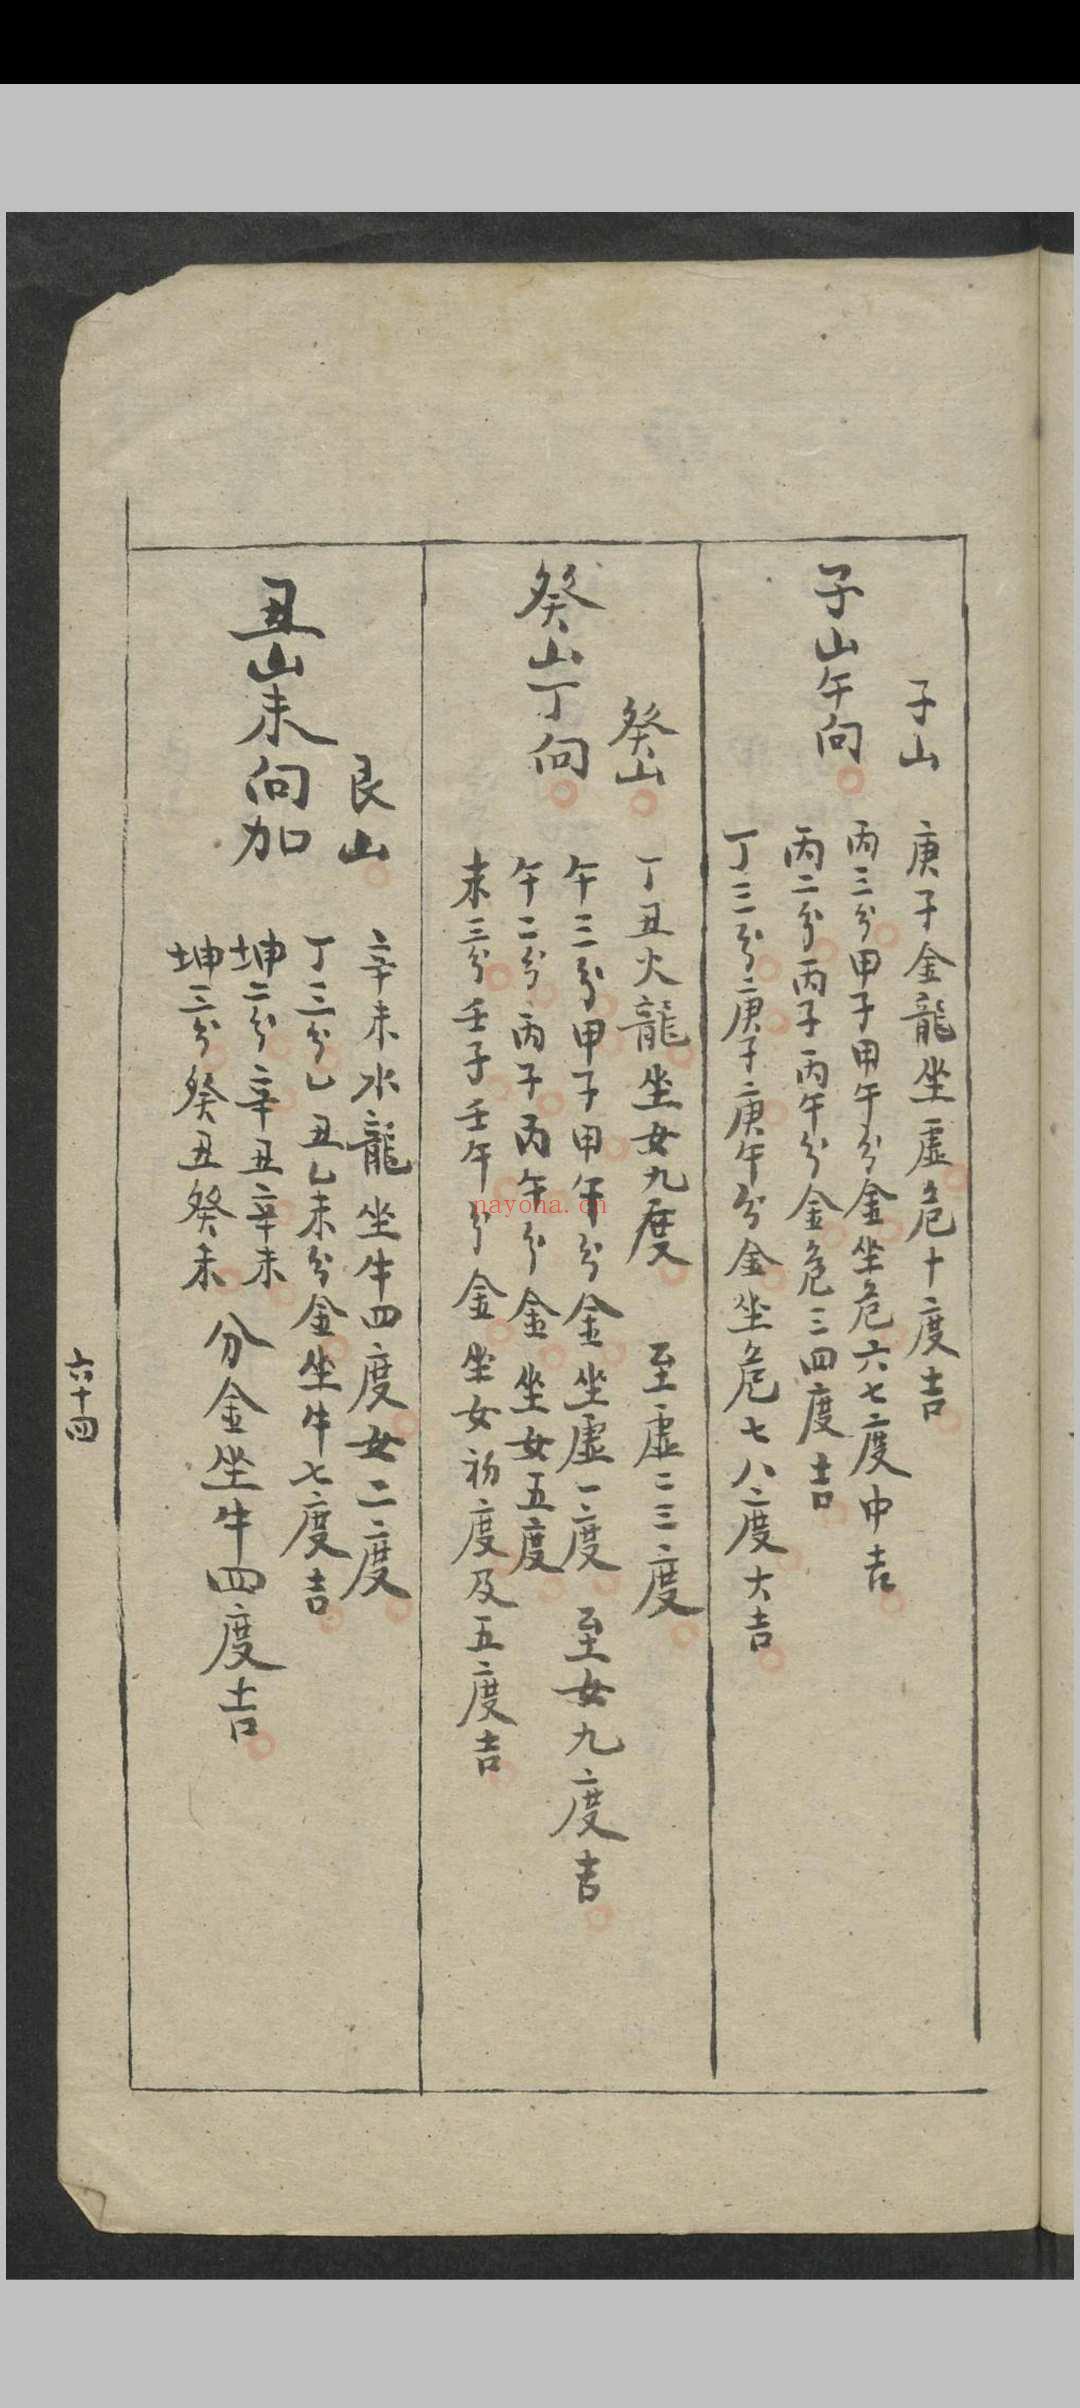 子山
庚子金龍坐虛危十度吉
子山午向
丙三分甲子甲午分金坐危六七度中吉
丙二分丙子丙午分金危三四度吉
丁三分庚子庚午分金坐危七八度大吉
癸山
丁丑火龍坐女九度 至虛二三度
癸山丁向
午三分甲子甲午分金坐虛一度 至女九度吉
午二分丙子丙午分金坐女五度
未三分壬子壬午分金坐女初度及五度吉
艮山
辛未水龍坐牛四度女二度
丑山未向加
丁三分乙丑乙未分金坐牛七度吉
坤二分辛丑辛未
坤三分癸丑癸未
分金坐牛四度吉
六十四
nayona.cn